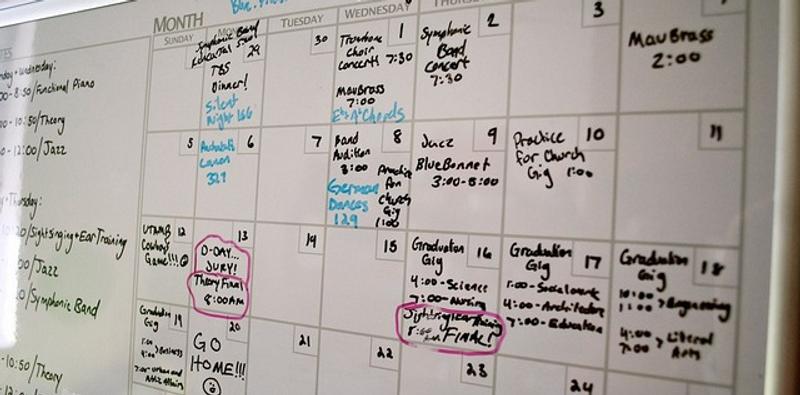 MONTH
SUNDAY
TUESDAY
WEDNESDAY
Wednesday:
8:50/Functional Piano
10:50/Theory
12:00/Jazz
Thursday:
Sightsinging+Ear Training
Jazz
Symphonic Band
10:50/Theory
Symphonic Band
29
TBS
Dinner!
Silent
Night 166
30
1
Trombone
Choir
Concert 7:30
MavBrass
7:00
2
Symphonic
Band
Concert
7:30
3
MavBrass
2:00
5
6
329
7
8
Band
Audition
3:00
German
Dances
129
Practice
for
Church
Gig
1:00
9
Jazz
BlueBonnet
3:00-5:00
10
Practice
for Church
Gig 1:00
11
12
Cowboys
Game!!!
13
D-DAY...
JURY!
Theory Final
8:00AM
14
15
16
Graduation
Gig
4:00-Science
7:00-Nursing
FINAL!
17
Graduation
Gig
1:00-Social work
4:00-Architecture
7:00-Education
18
Graduation
Gig
Engineering
4:00
7:00 > Liberal
Arts
19
Graduation
Gig
1:00
4:00 > Business
7:00-Urban and
Affairs
20
GO
HOME!!!
21
22
23
24